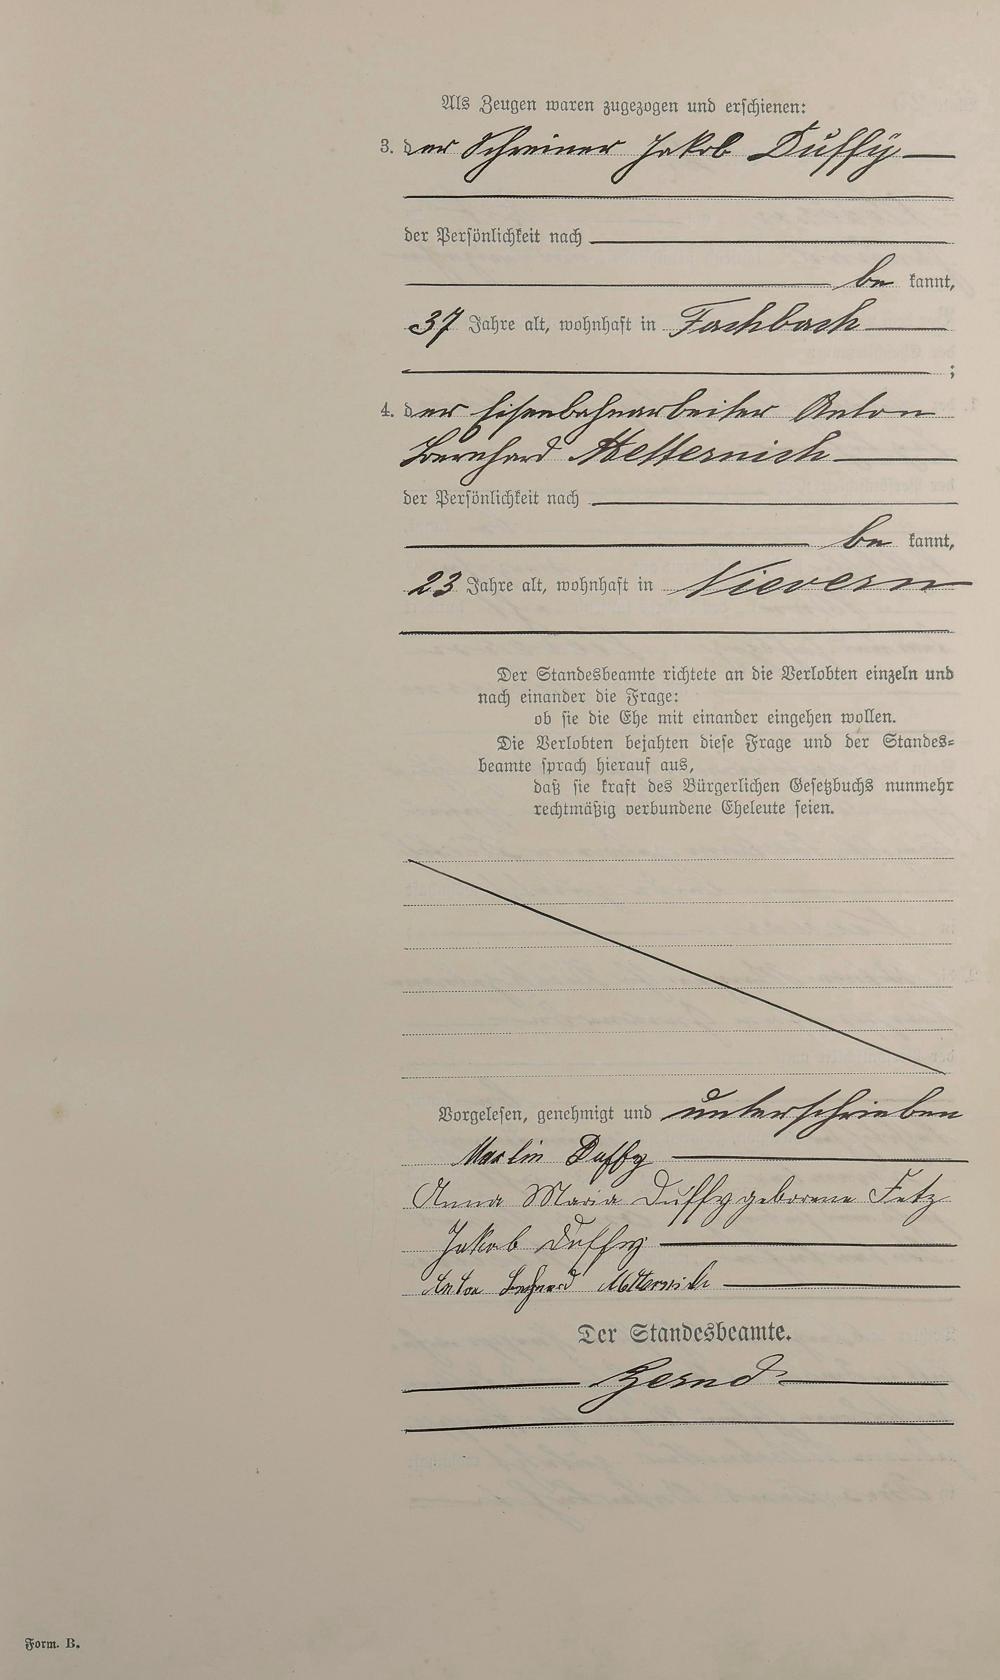 Als Zeugen waren zugezogen und erschienen:
3. der Schreiner Jakob Duffÿ
der Persönlichkeit nach
be kannt,
37 Jahre alt, wohnhaft in Fachbach
;
4. der Eisenbahnarbeiter Anton
Bernhard Metternich
der Persönlichkeit nach
be kannt,
23 Jahre alt, wohnhaft in Nievern
Der Standesbeamte richtete an die Verlobten einzeln und
nach einander die Frage:
ob sie die Ehe mit einander eingehen wollen.
Die Verlobten bejahten diese Frage und der Standes-
beamte sprach hierauf aus,
daß sie kraft des Bürgerlichen Gesetzbuchs nunmehr
rechtmäßig verbundene Eheleute seien.
Vorgelesen, genehmigt und unterschrieben
Martin Duffy
Anna Maria Duffy geborene Fetz
Jakob Duffy
Anton Bernhard Metternich
Der Standesbeamte.
Form. B.